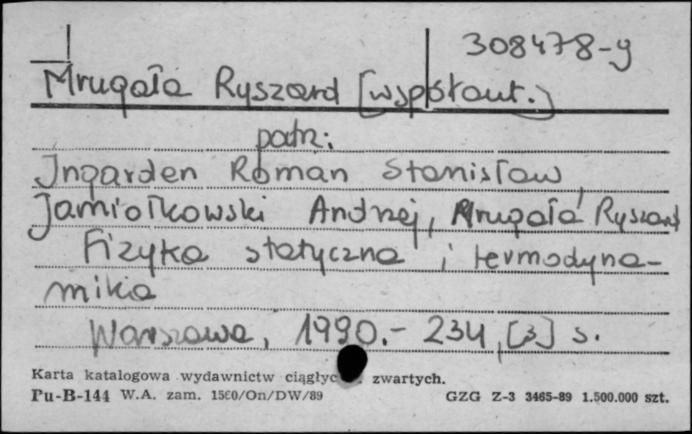 308478-g
Mrugała Ryszard [współaut.]
patrz:
Ingarden Roman Stanisław,
Jamiołkowski Andrzej, Mrugała Ryszard
Fizyka statyczna i termodyna-
mika
Warszawa, 1990.- 234, [3] s.
Karta katalogowa wydawnictw zwartych.
Pu-B-144 W.A. zam. 1560/On/DW/89 GZG Z-3 3465-89 1.500.000 szt.